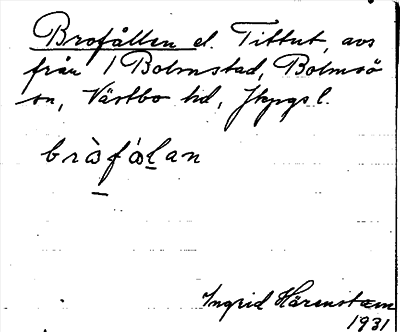 Brofållen el. Tittut, avs
från 1 Bolmstad, Bolmsö
sn, Västbo hd, Jkpgs l.
bròfȧlan
Ingrid Härenstam
1931